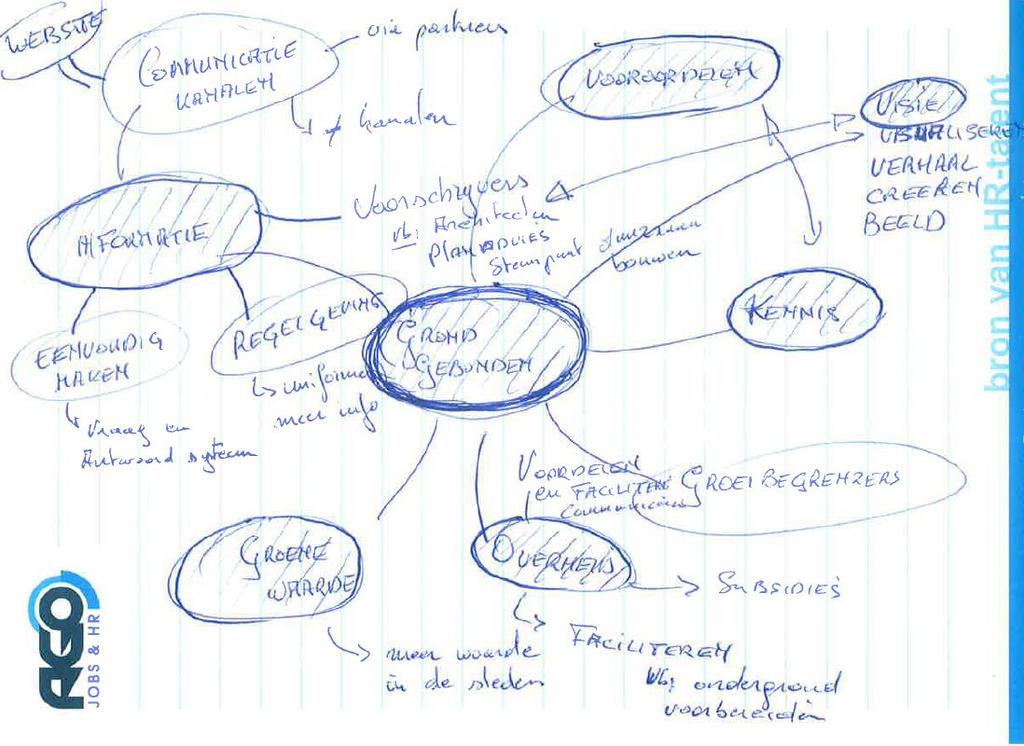 WEBSITE
COMMUNICATIE
KANALEN
via partners
≠ kanalen
VOOROORDELEN
VISIE
VISUALISEREN
VERHAAL
CREEREN
BEELD
INFORMATIE
Voorschrijvers
vb: Architecten
PLANADVIES
Steunpunt duurzaam
bouwen
EENVOUDIG
MAKEN
Vraag en
Antwoord systeem
REGELGEVING
uniformer
meer info
GROND
GEBONDEN
KENNIS
GROEIBEGRENZERS
VOORDELEN
en FACILITEREN
communiceren
OVERHEID
SUBSIDIES
FACILITEREN
vb: ondergrond
voorbereiden
GROENE
WAARDE
meer waarde
in de steden
AGO
JOBS & HR
bron van HR-talent